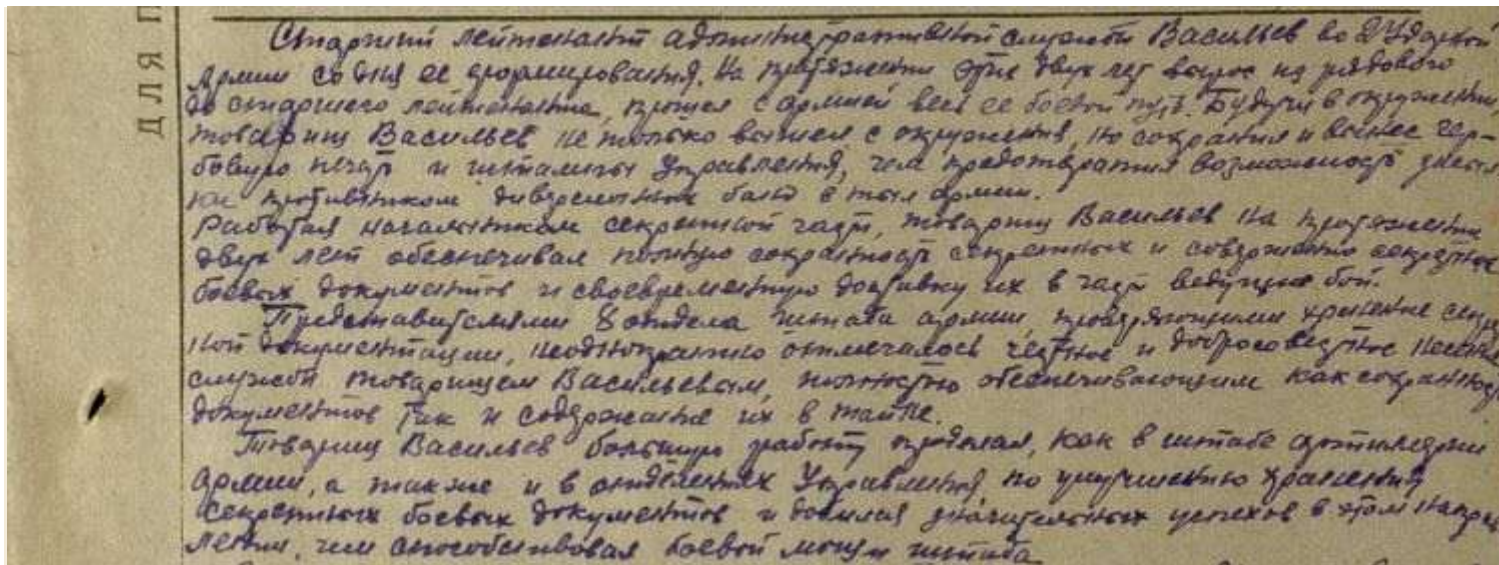 ДЛЯ П
Старший лейтенант административной службы Васильев во 2 Ударной
Армии со дня ее формирования. На протяжении этих двух лет вырос из рядового
до старшего лейтенанта, прошел с армией весь ее боевой путь. Будучи в окружении,
товарищ Васильев не только вышел с окружения, но сохранил и вынес гер-
бовую печать и штампы Управления, чем предотвратил возможность
противником диверсионных в тыл армии.
Работая начальником секретной части, товарищ Васильев на протяжении
двух лет обеспечивал полную сохранность секретных и совершенно секретных
боевых документов и своевременную доставку их в части ведущие бой.
Представителями 8 отдела штаба армии, проверяющими хранение секрет-
ной документации, неоднократно отмечалось честное и добросовестное несение
службы товарищем Васильевым, полностью обеспечивающим как сохранность
документов так и содержание их в тайне.
Товарищ Васильев большую работу проделал, как в штабе артиллерии
армии, а также и в отделениях Управления, по улучшению хранения
секретных боевых документов и добился значительных успехов в этом направ
лении, чем способствовал боевой мощи штаба